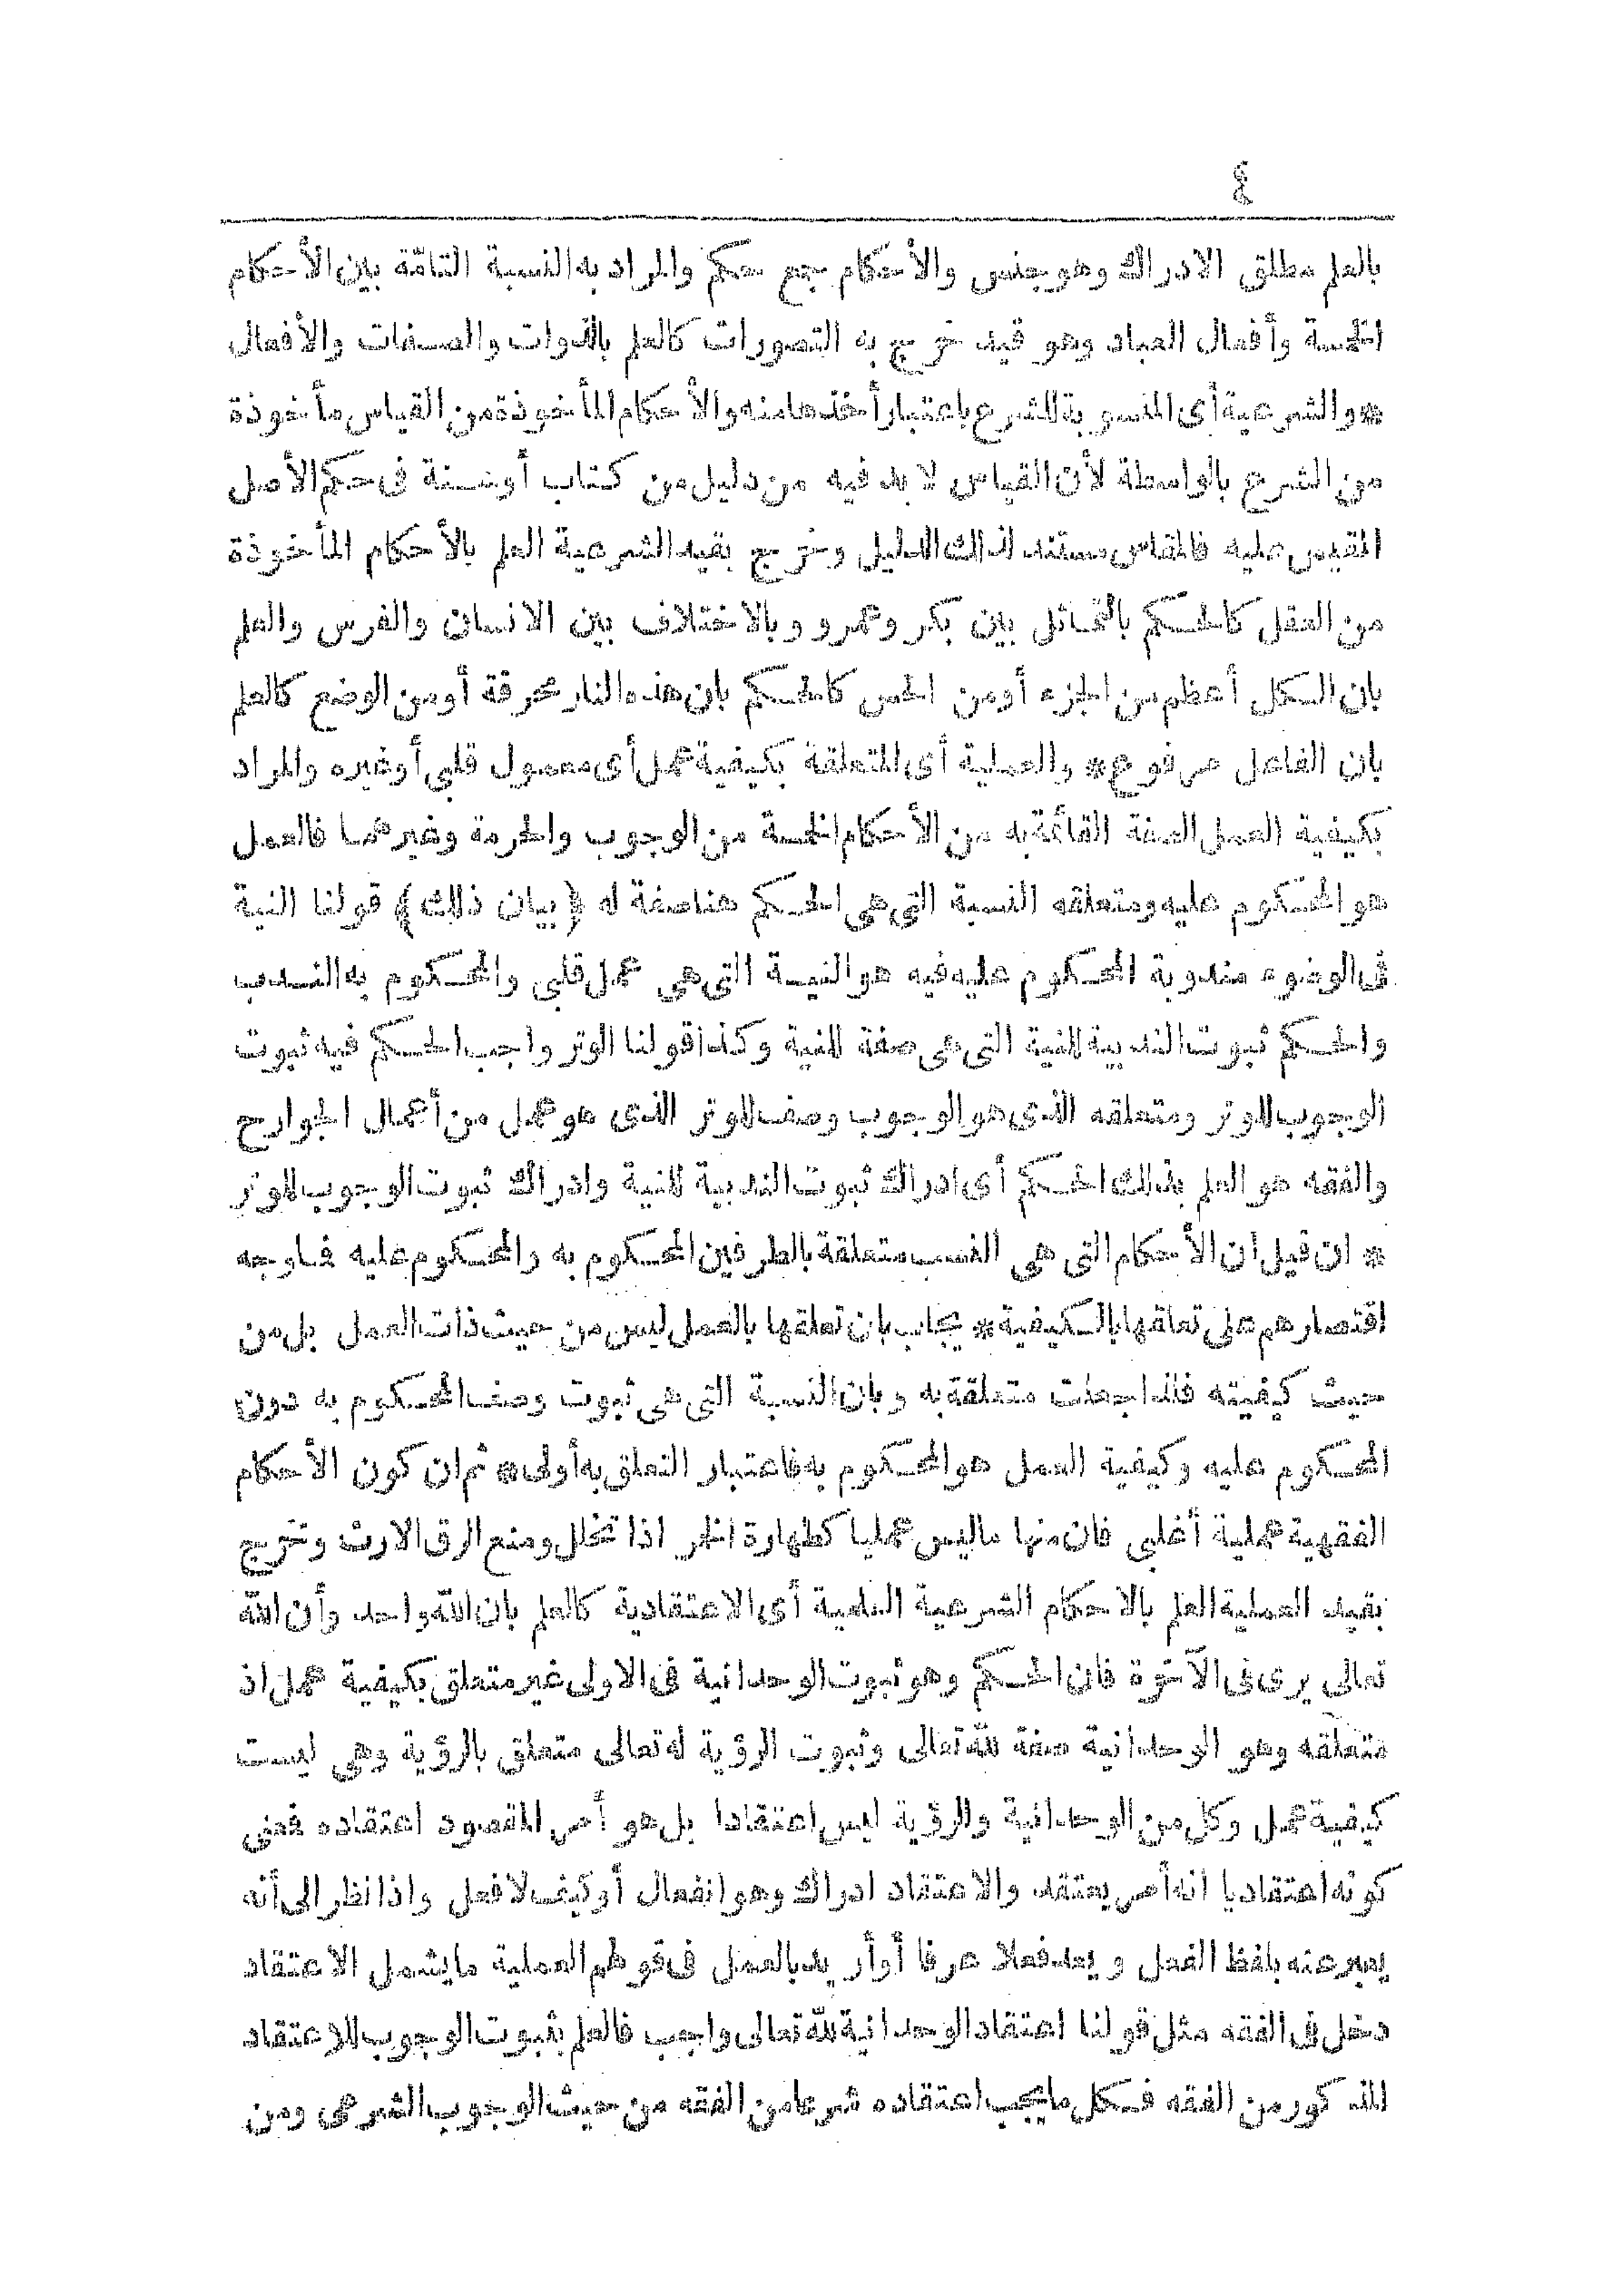 ٤
بالعلم مطلق الادراك وهو جنس والأحكام جمع حكم والمراد به النسبة التامّة بين الأحكام
الخمسة وأفعال العباد وهو قيد خرج به التصورات كالعلم بالذوات والصفات والأفعال
* والشرعية أى المنسوبة للشرع باعتبار أخذها منه والأحكام المأخوذة من القياس مأخوذة
من الشرع بالواسطة لأن القياس لا بد فيه من دليل من كتاب أو سنة فى حكم الأصل
المقيس عليه فالمقاس مستند لذلك الدليل وخرج بقيد الشرعية العلم بالأحكام المأخوذة
من العقل كالحكم بالتماثل بين بكر وعمرو وبالاختلاف بين الانسان والفرس والعلم
بان الكل أعظم من الجزء أو من الحس كالحكم بان هذه النار محرقة أو من الوضع كالعلم
بان الفاعل مرفوع * والعملية أى المتعلقة بكيفية عمل أى معمول قلبى أو غيره والمراد
بكيفية العمل الصفة القائمة به من الأحكام الخمسة من الوجوب والحرمة وغيرهما فالعمل
هو المحكوم عليه ومتعلقه النسبة التى هى الحكم هنا صفة له (بيان ذلك) قولنا النية
فى الوضوء مندوبة المحكوم عليه فيه هو النية التى هى عمل قلبى والمحكوم به الندب
والحكم ثبوت الندبية للنية التى هى صفة للنية وكذا قولنا الوتر واجب الحكم فيه ثبوت
الوجوب للوتر ومتعلقه الذى هو الوجوب وصف للوتر الذى هو عمل من أعمال الجوارح
والفقه هو العلم بذلك الحكم أى ادراك ثبوت الندبية للنية وادراك ثبوت الوجوب للوتر
* ان قيل ان الأحكام التى هى النسب متعلقة بالطرفين المحكوم به والمحكوم عليه فما وجه
اقتصارهم على تعلقها بالكيفية * يجاب بان تعلقها بالعمل ليس من حيث ذات العمل بل من
حيث كيفيته فلذا جعلت متعلقة به وبان النسبة التى هى ثبوت وصف المحكوم به دون
المحكوم عليه وكيفية العمل هو المحكوم به فاعتبار التعلق به أولى * ثم ان كون الأحكام
الفقهية عملية أغلبى فان منها ما ليس عمليا كطهارة الخمر اذا تخلل ومنع الرق الارث وتخرج
بقيد العملية العلم بالاحكام الشرعية العلمية أى الاعتقادية كالعلم بان الله واحد وأن الله
تعالى يرى فى الآخرة فان الحكم وهو ثبوت الوحدانية فى الاولى غير متعلق بكيفية عمل اذ
متعلقه وهو الوحدانية صفة لله تعالى وثبوت الرؤية له تعالى متعلق بالرؤية وهى ليست
كيفية عمل وكل من الوحدانية والرؤية ليس اعتقادا بل هو أمر المقصود اعتقاده فمعنى
كونه اعتقاديا انه أمر يعتقد والاعتقاد ادراك وهو انفعال أو كيف لا فعل واذا نظر الى أنه
يعبر عنه بلفظ الفعل ويعد فعلا عرفا أو أريد بالعمل فى قولهم العملية ما يشمل الاعتقاد
دخل فى الفقه مثل قولنا اعتقاد الوحدانية لله تعالى واجب فالعلم بثبوت الوجوب للاعتقاد
المذكور من الفقه فكل ما يجب اعتقاده شرعا من الفقه من حيث الوجوب الشرعى ومن